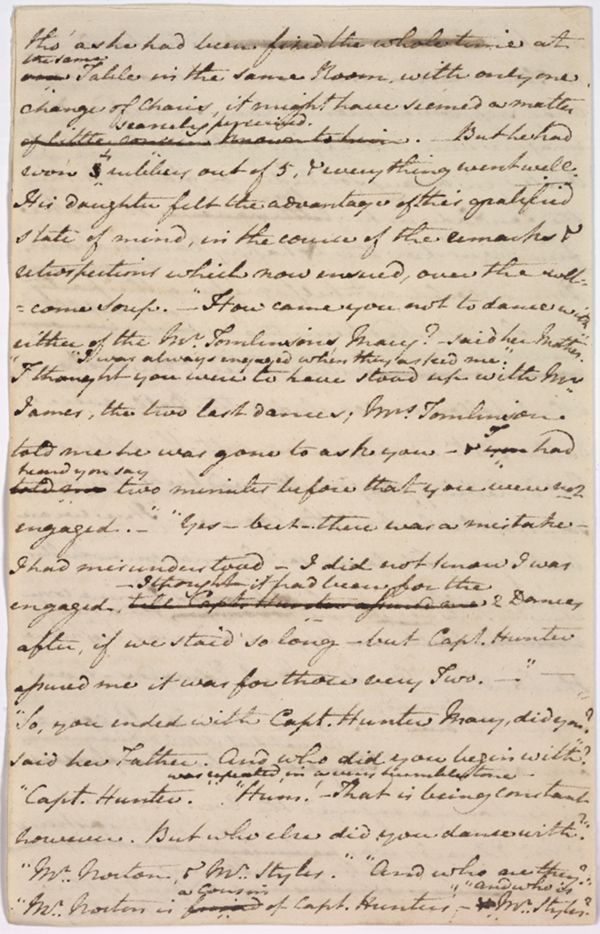 tho' as he had been fixed the whole time at
the same
one Table in the same Room, with only one
change of chairs, it might have seemed a matter
scarcely perceived.
of little concern known to him. — But he had
won 4 rubbers out of 5, & everything went well.
His daughter felt the advantage of this gratified
state of mind, in the course of the remarks &
retrospections which now ensued, over the wel-
-come soup. — "How came you not to dance with
either of the Mr. Tomlinsons, Mary? — said her Mother.
"I was always engaged when they asked me."
"I thought you were to have stood up with Mr.
James, the two last dances; Mrs. Tomlinson
told me he was gone to ask you — & I had
heard you say
told me two minutes before that you were not
engaged. —" "Yes — but — there was a mistake —
I had misunderstood — I did not know I was
— I thought it had been for the
engaged, till Capt. Hunter assured me 2 Dances
after, if we staid so long — but Capt. Hunter
assured me it was for those very Two. —" —
"So, you ended with Capt. Hunter Mary, did you?
said her Father. And who did you begin with?
was repeated in a very humble tone —
"Capt. Hunter." "Hum! — That is being constant
however. But who else did you dance with?"
"Mr. Norton, & Mr. Styles." "And who are they?"
a Cousin
"and who is
"Mr. Norton is of Capt. Hunter's. — Mr. Styles?"